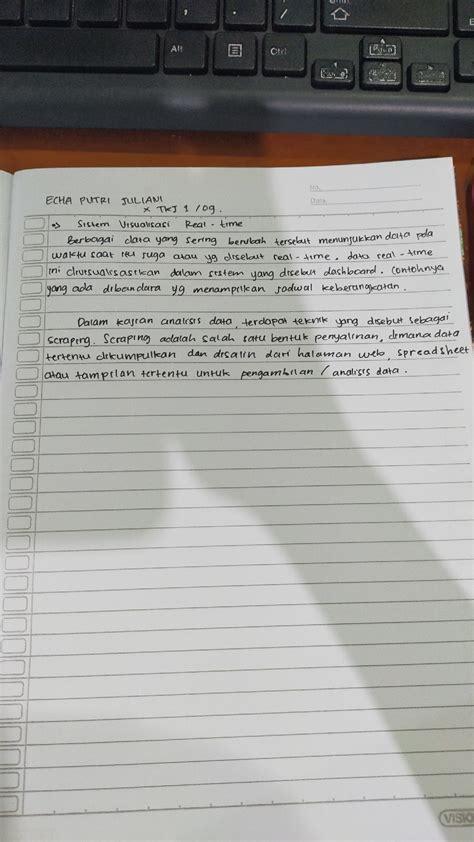 Alt
Ctrl
No.
Date
ECHA PUTRI JULIANI
X TKJ 1 / 09.
=> Sistem Visualisasi Real - time
Berbagai data yang sering berubah tersebut menunjukkan data pda
waktu saat itu juga atau yg disebut real-time. data real-time
ini divisualisasikan dalam sistem yang disebut dashboard. Contohnya
yang ada dibandara yg menampilkan jadwal keberangkatan.
Dalam kajian analisis data, terdapat teknik yang disebut sebagai
scraping. Scraping adalah salah satu bentuk penyalinan, dimana data
tertentu dikumpulkan dan disalin dari halaman web, spreadsheet
atau tampilan tertentu untuk pengambilan / analisis data.
VISIO